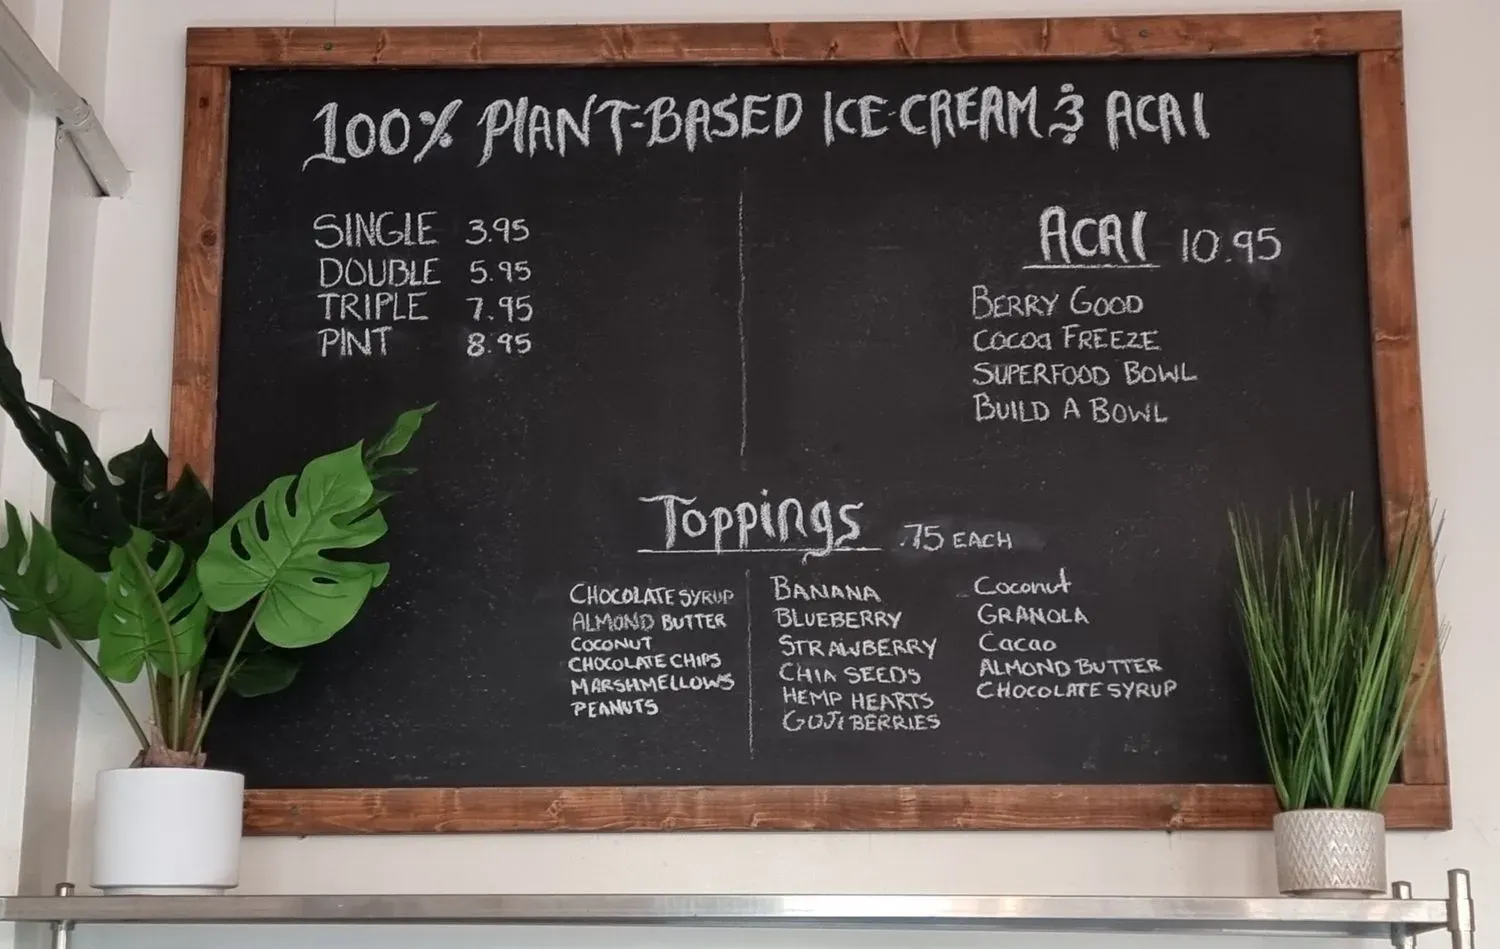 100% PLANT-BASED ICE-CREAM & ACAI
SINGLE 3.95
DOUBLE 5.95
TRIPLE 7.95
PINT 8.95
ACAI 10.95
BERRY GOOD
COCOA FREEZE
SUPERFOOD BOWL
BUILD A BOWL
Toppings .75 EACH
CHOCOLATE SYRUP
ALMOND BUTTER
COCONUT
CHOCOLATE CHIPS
MARSHMELLOWS
PEANUTS
BANANA
BLUEBERRY
STRAWBERRY
CHIA SEEDS
HEMP HEARTS
GOJI BERRIES
Coconut
GRANOLA
Cacao
ALMOND BUTTER
CHOCOLATE SYRUP